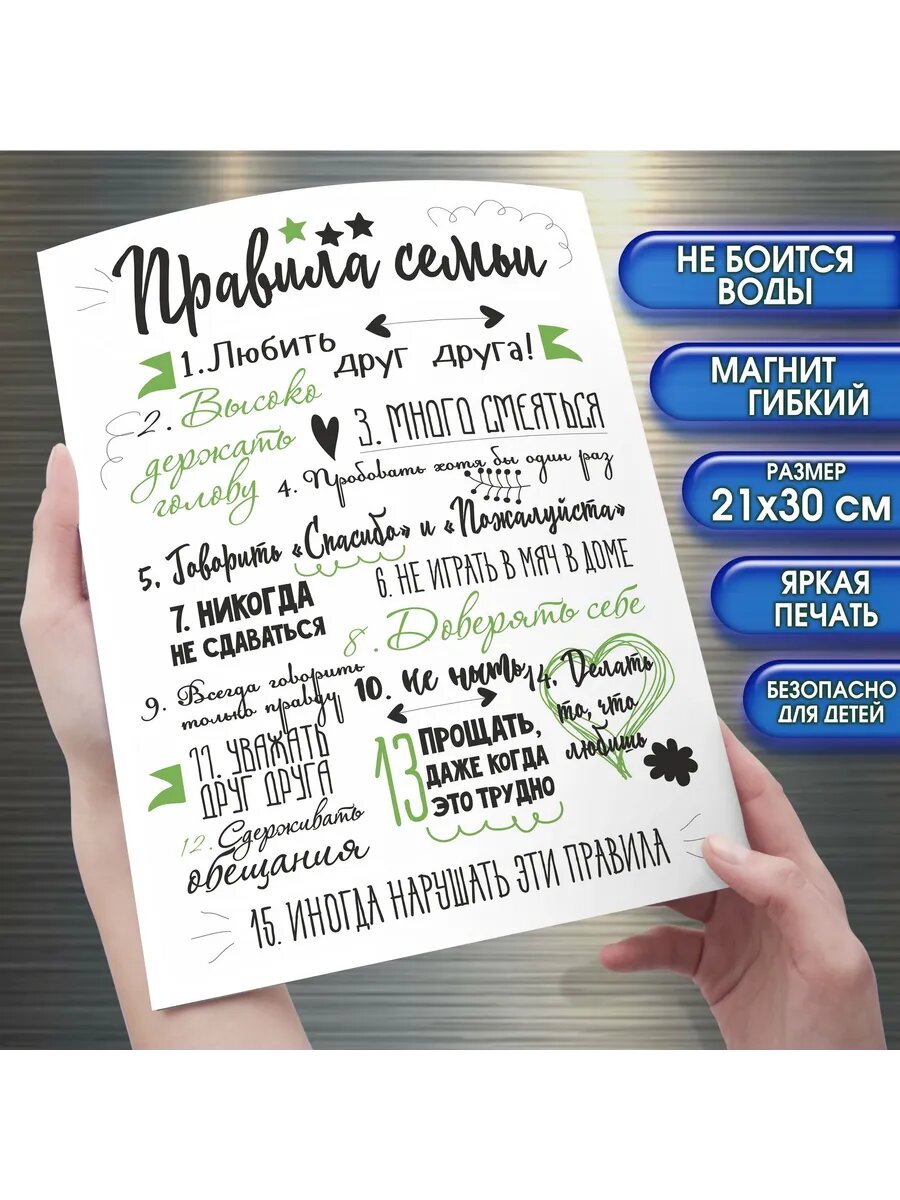 Правила семьи
1. Любить друг друга!
2. Высоко
держать
голову
3. МНОГО СМЕЯТЬСЯ
4. Пробовать хотя бы один раз
5. Говорить «Спасибо» и «Пожалуйста»
6. НЕ ИГРАТЬ В МЯЧ В ДОМЕ
7. НИКОГДА
НЕ СДАВАТЬСЯ
8. Доверять себе
9. Всегда говорить
только правду
10. не ныть
14. Делать
то, что
любишь
11. УВАЖАТЬ
ДРУГ ДРУГА
13 ПРОЩАТЬ,
ДАЖЕ КОГДА
ЭТО ТРУДНО
12. Сдерживать
обещания
15. ИНОГДА НАРУШАТЬ ЭТИ ПРАВИЛА
НЕ БОИТСЯ
ВОДЫ
МАГНИТ
ГИБКИЙ
РАЗМЕР
21х30 см
ЯРКАЯ
ПЕЧАТЬ
БЕЗОПАСНО
ДЛЯ ДЕТЕЙ